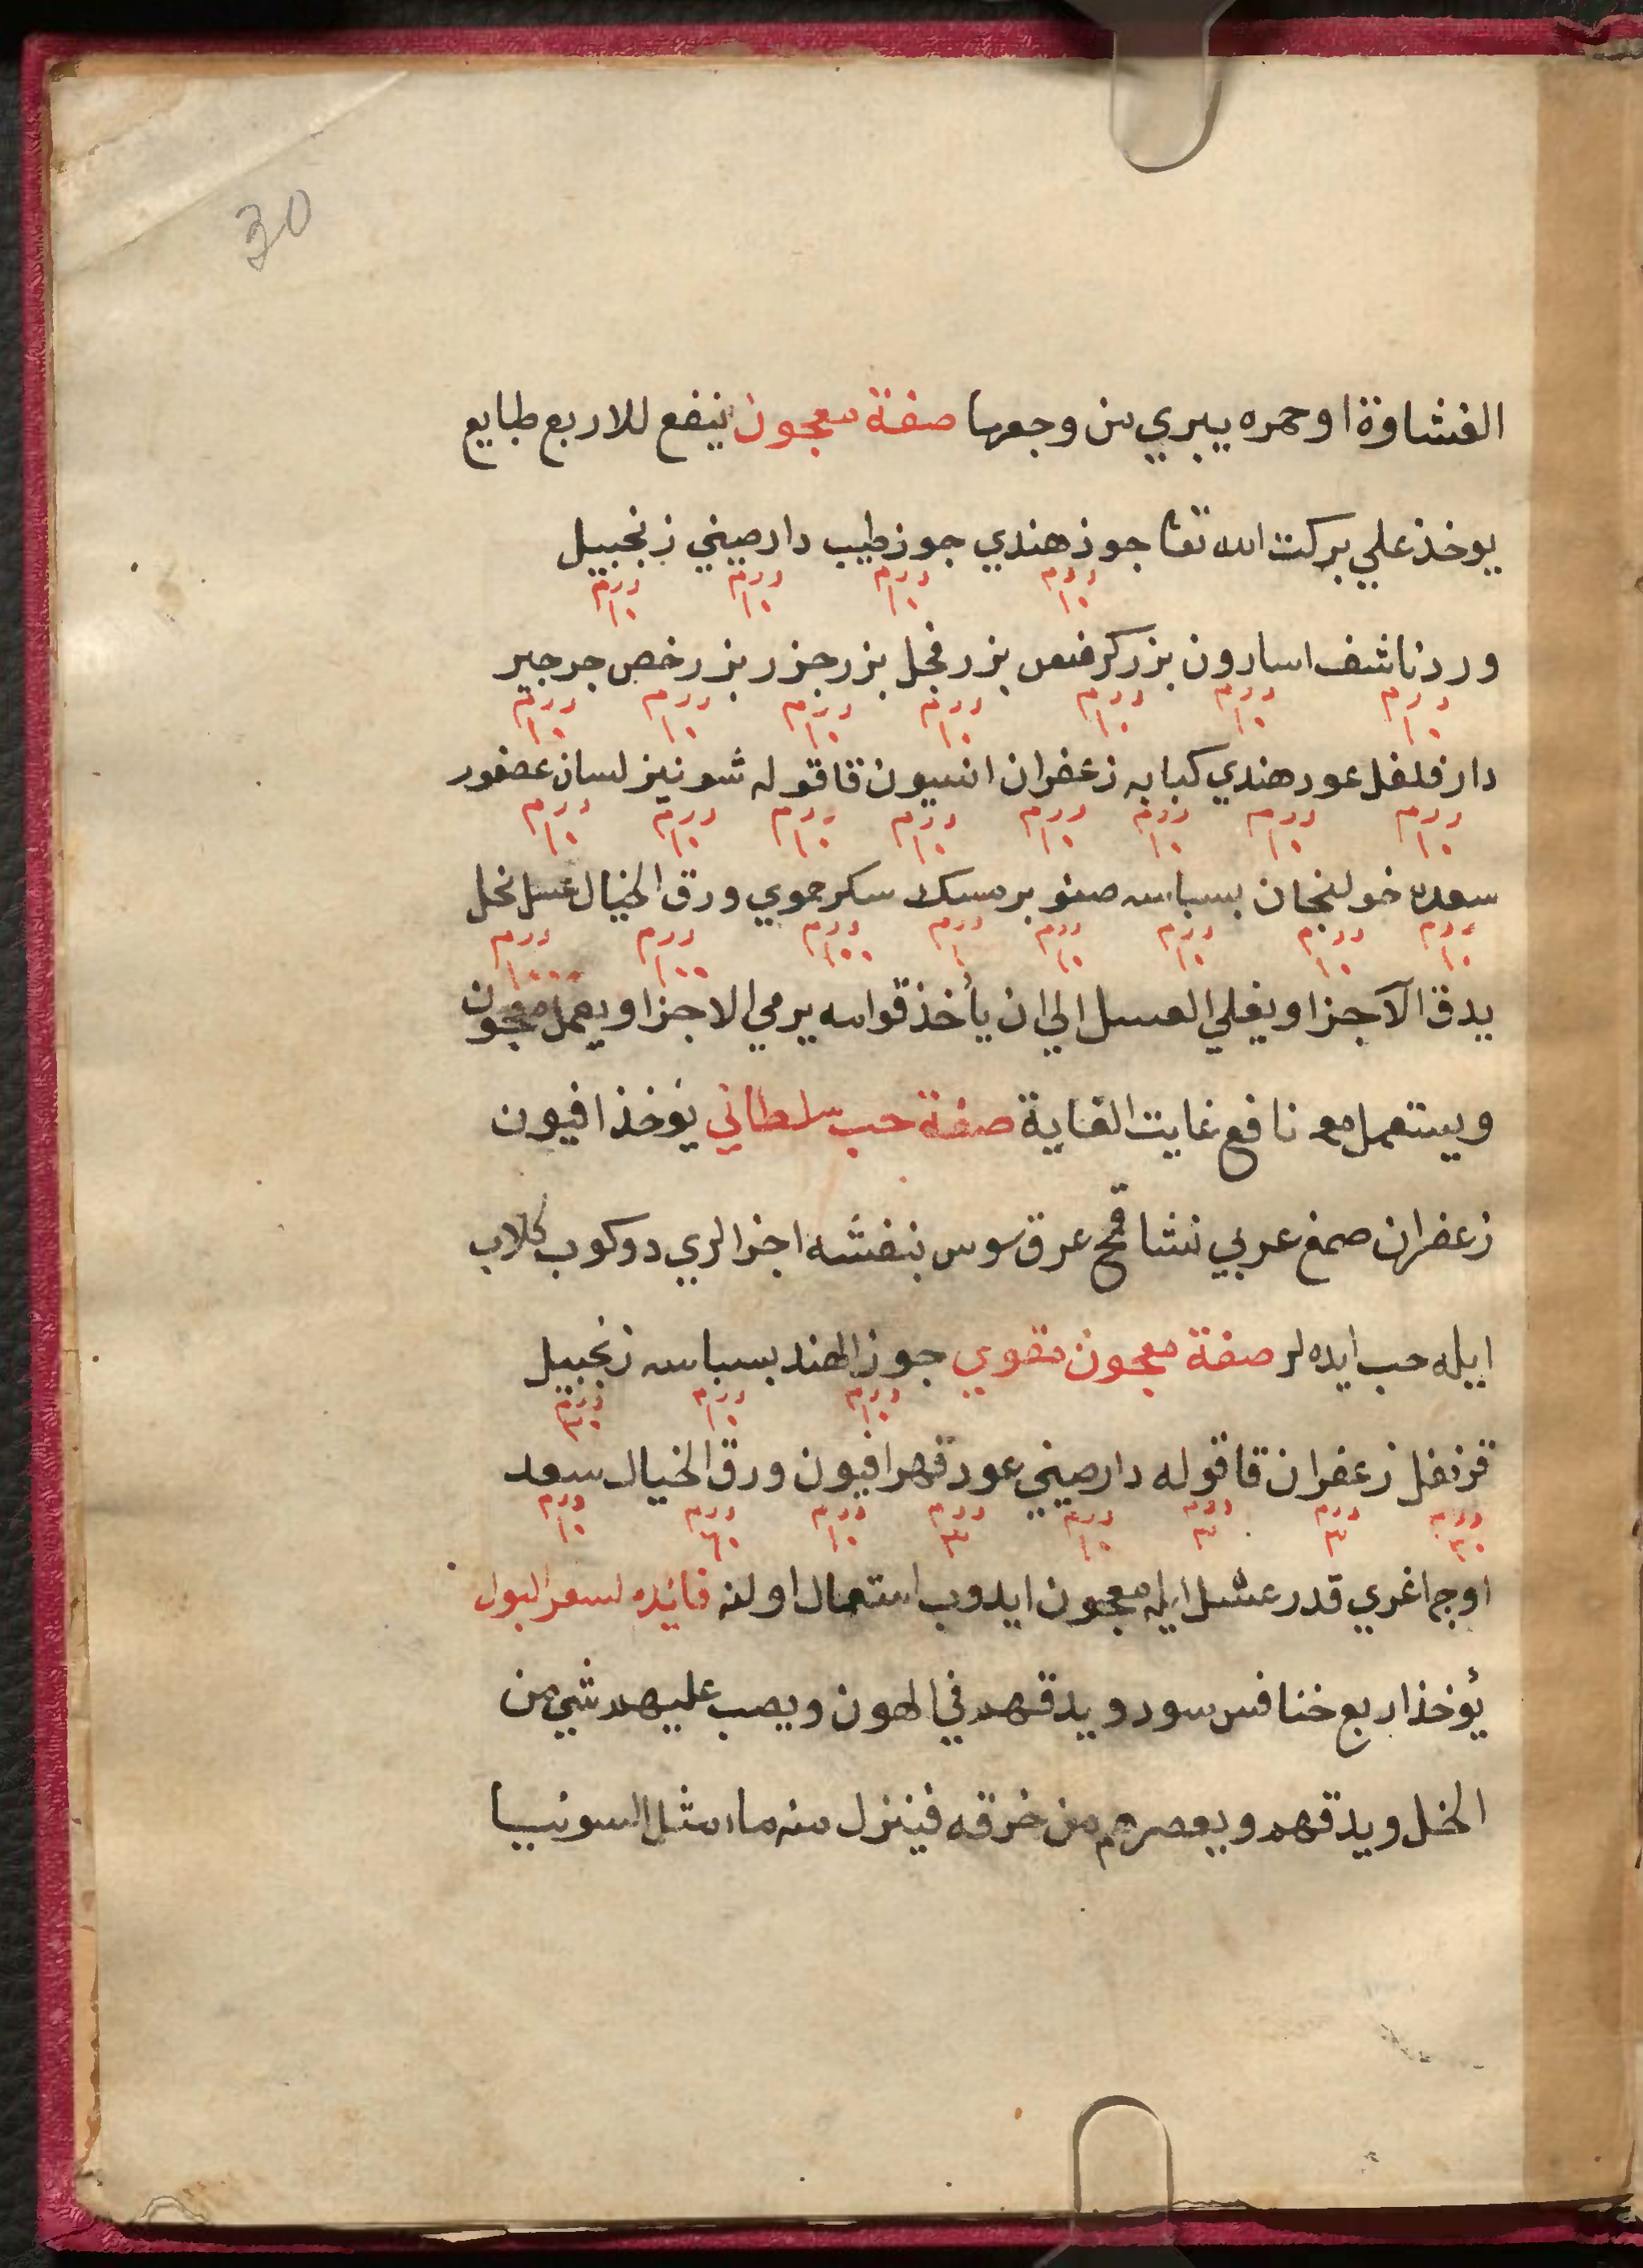 30
الغشاوة او حمره يبري من وجعها صفة معجون ينفع للاربع طبايع
يوخذ علي بركت الله تعا جوز هندي جوز طيب دار صيني زنجبيل
درم ١٠ درم ١٠ درم ١٠ درم ١٠
ورد ناشف اسارون بزر كرفس بزر فجل بزر جزر بزر رخص جرجير
درم ١٠ درم ١٠ درم ١٠ درم ١٠ درم ١٠ درم ١٠ درم ١٠
دار فلفل عود هندي كبابه زعفران انسيون قاقوله شونيز لسان عصفور
درم ١٠ درم ١٠ درم ١٠ درم ١٠ درم ١٠ درم ١٠ درم ١٠ درم ١٠
سعده خولنجان بسباسه صنوبر مسك سكر حموي ورق الخيال عسل نحل
درم ١٠ درم ١٠ درم ١٠ درم ١٠ درم ١ درم ١٠٠ درم ١٠٠ درم ١٠٠٠
يدق الآجزا ويغلي العسل الي ان يأخذ قوامه يرمي الاجزا ويعمل معجون
ويستعمل نافع غايت الغاية صفة حب سلطاني يؤخذ افيون
زعفران صمغ عربي نشا قمح عرق سوس بنفشه اجزالري دوكوب كلاب
ايله حب ايده لر صفة معجون مقوي جوز الهند بسباسه زنجبيل
درم ١٠ درم ١٠ درم ٣٠
قرنفل زعفران قاقوله دار صيني عود قهر افيون ورق الخيال سعد
درم ٣٠ درم ٣ درم ٣ درم ١٠ درم ٣ درم ١٠ درم ٦٠ درم ١٠
اوج اغري قدر عسل ايله معجون ايدوب استعمال اولنه فائده لسعر البول
يؤخذ اربع خنافس سود ويدقهم في الهون ويصب عليهم شي من
الخل ويدقهم ويعصرهم من خرقه فينزل منه ماء مثل السوبيا